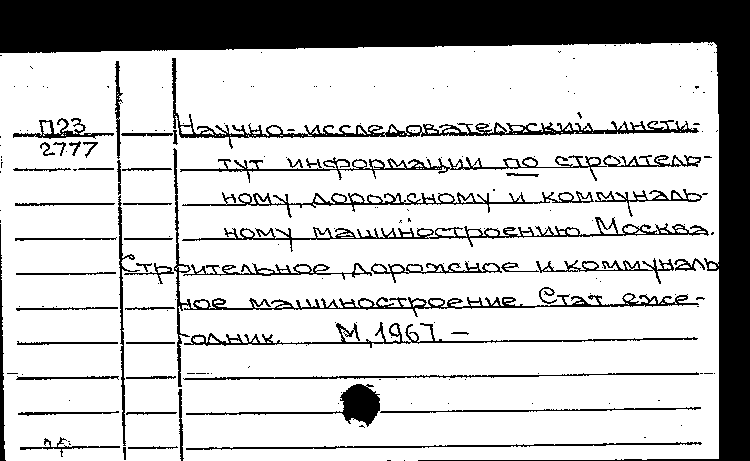 П23
2777
Научно-исследовательский инсти-
тут информации по строитель-
ному, дорожному и коммуналь-
ному машиностроению. Москва.
Строительное, дорожное и коммуналь
ное машиностроение. Стат еже-
годник. М., 1967. —